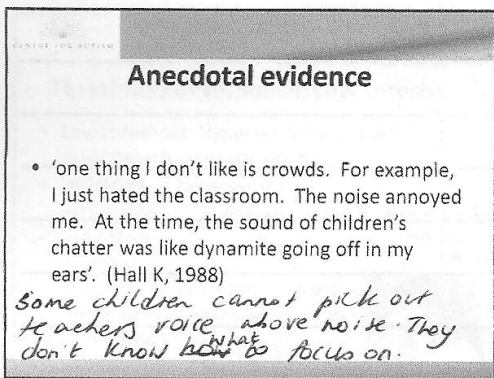 CENTRE FOR AUTISM
Anecdotal evidence
• 'one thing I don't like is crowds. For example,
I just hated the classroom. The noise annoyed
me. At the time, the sound of children's
chatter was like dynamite going off in my
ears'. (Hall K, 1988)
Some children cannot pick out
teachers voice above noise. They
don't know what to focus on.